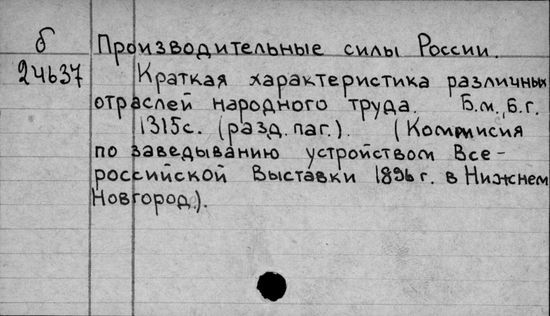 б Производительные силы России.
24637 Краткая характеристика различных
отраслей народного труда. Б.м., Б.г.
1315с. (разд. паг.). (Коммисия
по заведыванию устройством Все-
российской Выставки 1896г. в Нижнем
Новгород.).